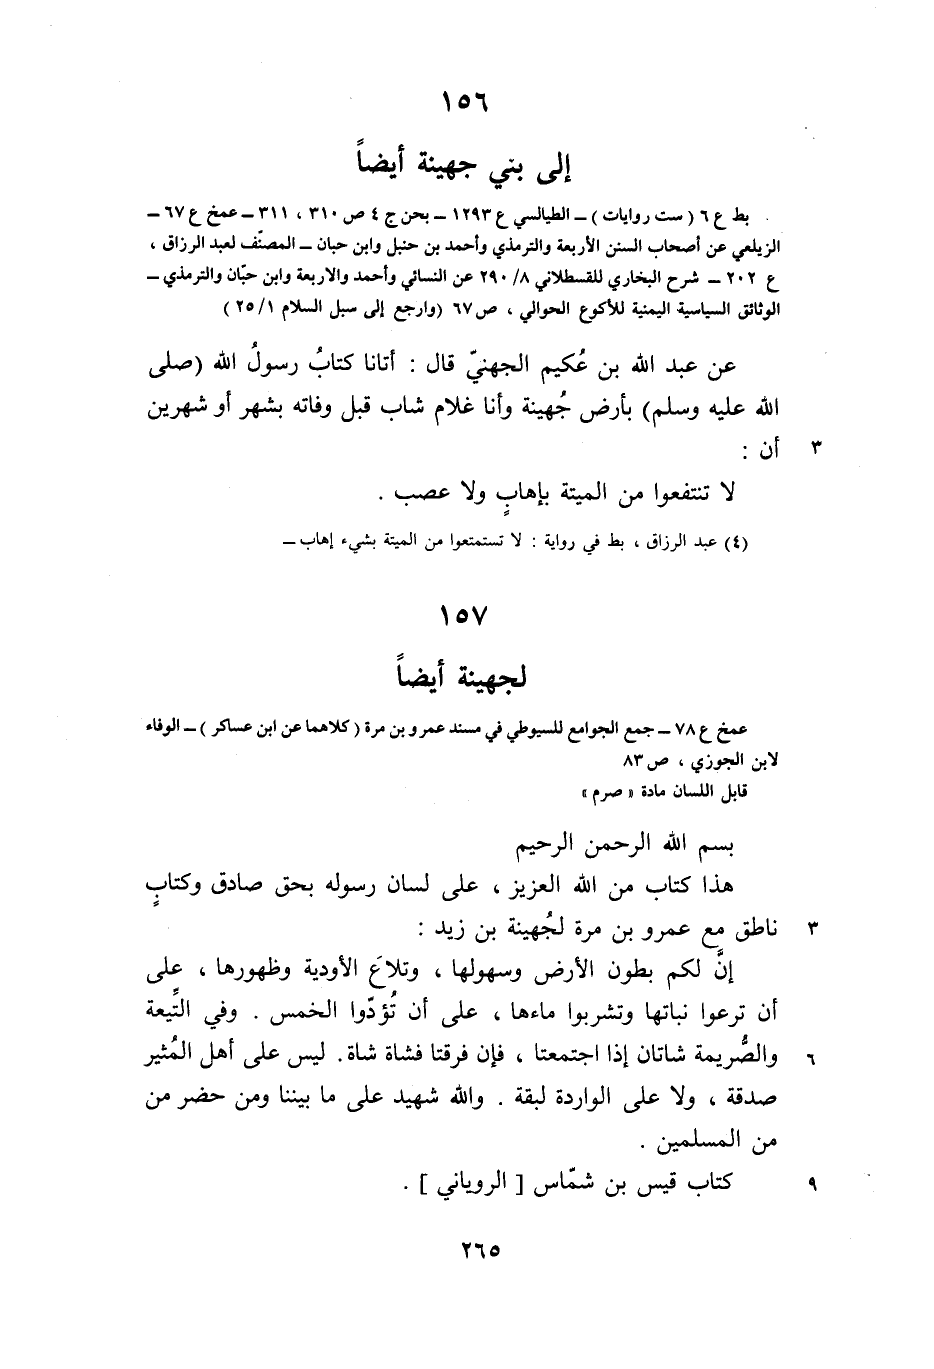 ١٥٦
إلى بني جهينة أيضاً
بط ع ٦ ( ست روايات ) ــ الطيالسي ع ١٢٩٣ ــ بحن ج ٤ ص ٣١٠ ، ٣١١ ــ عمخ ع ٦٧ ــ
الزيلعي عن أصحاب السنن الأربعة والترمذي وأحمد بن حنبل وابن حبان ــ المصنّف لعبد الرزاق ،
ع ٢٠٢ ــ شرح البخاري للقسطلاني ٨/ ٢٩٠ عن النسائي وأحمد والاربعة وابن حبّان والترمذي ــ
الوثائق السياسية اليمنية للأكوع الحوالي ، ص ٦٧ (وارجع إلى سبل السلام ١/ ٢٥ )
عن عبد الله بن عُكيم الجهنيّ قال : أتانا كتابُ رسولُ الله (صلى
الله عليه وسلم) بأرض جُهينة وأنا غلام شاب قبل وفاته بشهر أو شهرين
٣ أن :
لا تنتفعوا من الميتة بإهابٍ ولا عصب .
(٤) عبد الرزاق ، بط في رواية : لا تستمتعوا من الميتة بشيء إهاب ــ
١٥٧
لجهينة أيضاً
عمخ ع ٧٨ ــ جمع الجوامع للسيوطي في مسند عمرو بن مرة ( كلاهما عن ابن عساكر ) ــ الوفاء
لابن الجوزي ، ص ٨٣
قابل اللسان مادة « صرم »
بسم الله الرحمن الرحيم
هذا كتاب من الله العزيز ، على لسان رسوله بحق صادق وكتابٍ
٣ ناطق مع عمرو بن مرة لجُهينة بن زيد :
إنَّ لكم بطون الأرض وسهولها ، وتلاعَ الأودية وظهورها ، على
أن ترعوا نباتها وتشربوا ماءها ، على أن تُؤدّوا الخمس . وفي التِّيعة
٦ والصُّريمة شاتان إذا اجتمعتا ، فإن فرقتا فشاة شاة. ليس على أهل المُثير
صدقة ، ولا على الواردة لبقة . والله شهيد على ما بيننا ومن حضر من
من المسلمين .
٩ كتاب قيس بن شمّاس [ الروياني ] .
٢٦٥